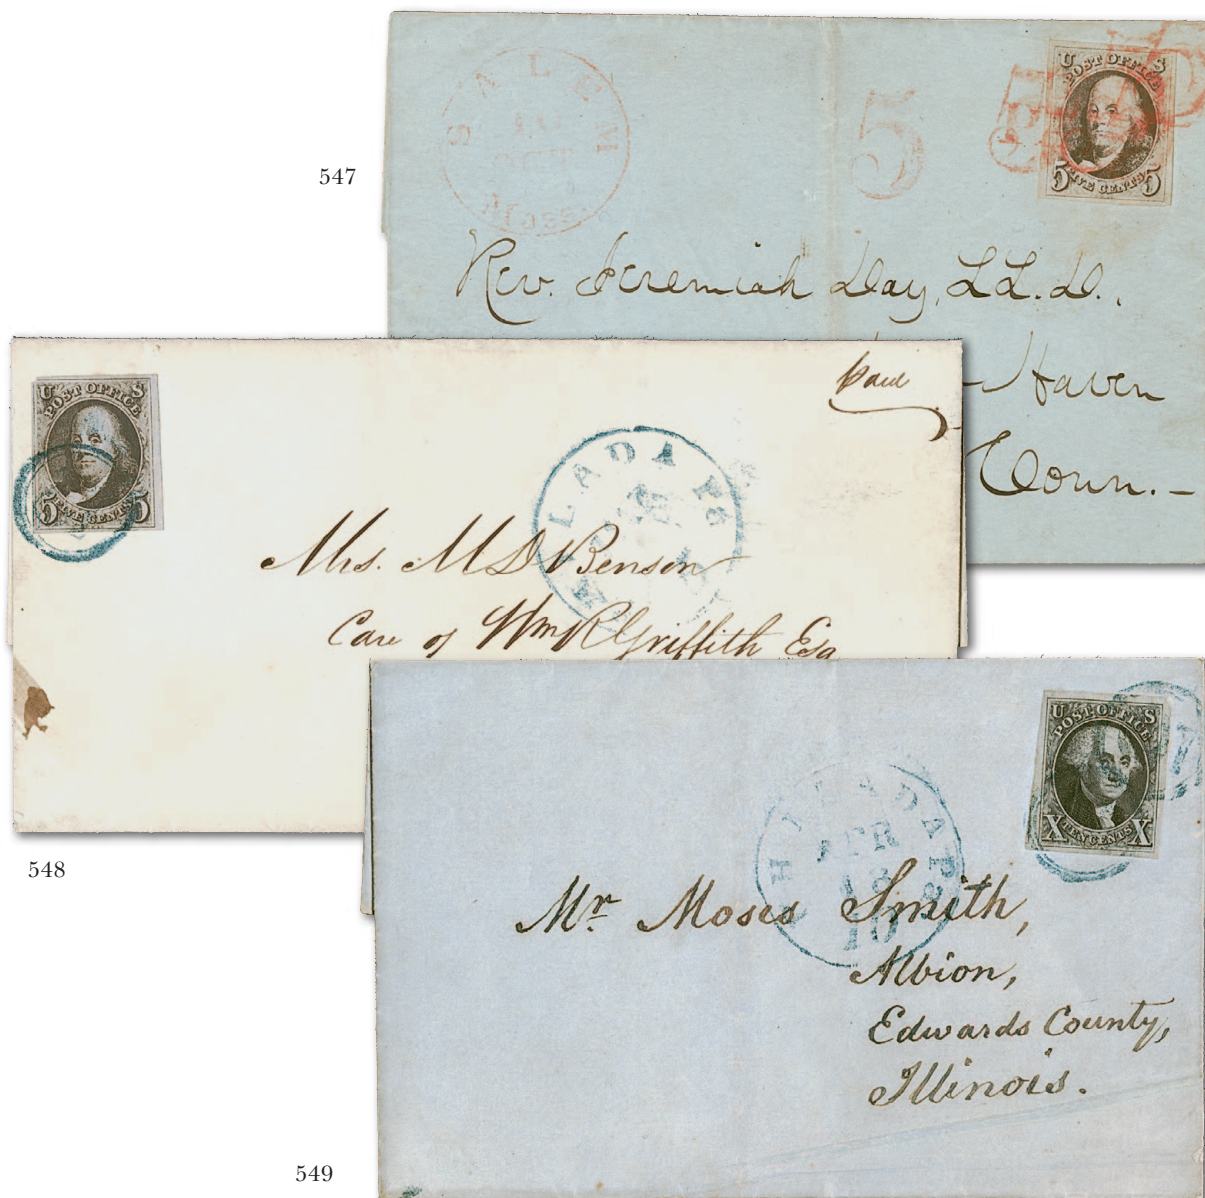 547
SALEM
10
OCT
Mass.
5
5
PAID
U S
POST OFFICE
5 FIVE CENTS 5
Rev. Jeremiah Day, LL.D.,
Haven
Conn.-
U S
POST OFFICE
5 FIVE CENTS 5
paid
LADA Ps
Mrs. M D Benson
Care of Wm R Griffith Esq
548
U S
POST OFFICE
X TEN CENTS X
PHILADA Ps
APR
10
Mr Moses Smith,
Albion,
Edwards County,
Illinois.
549